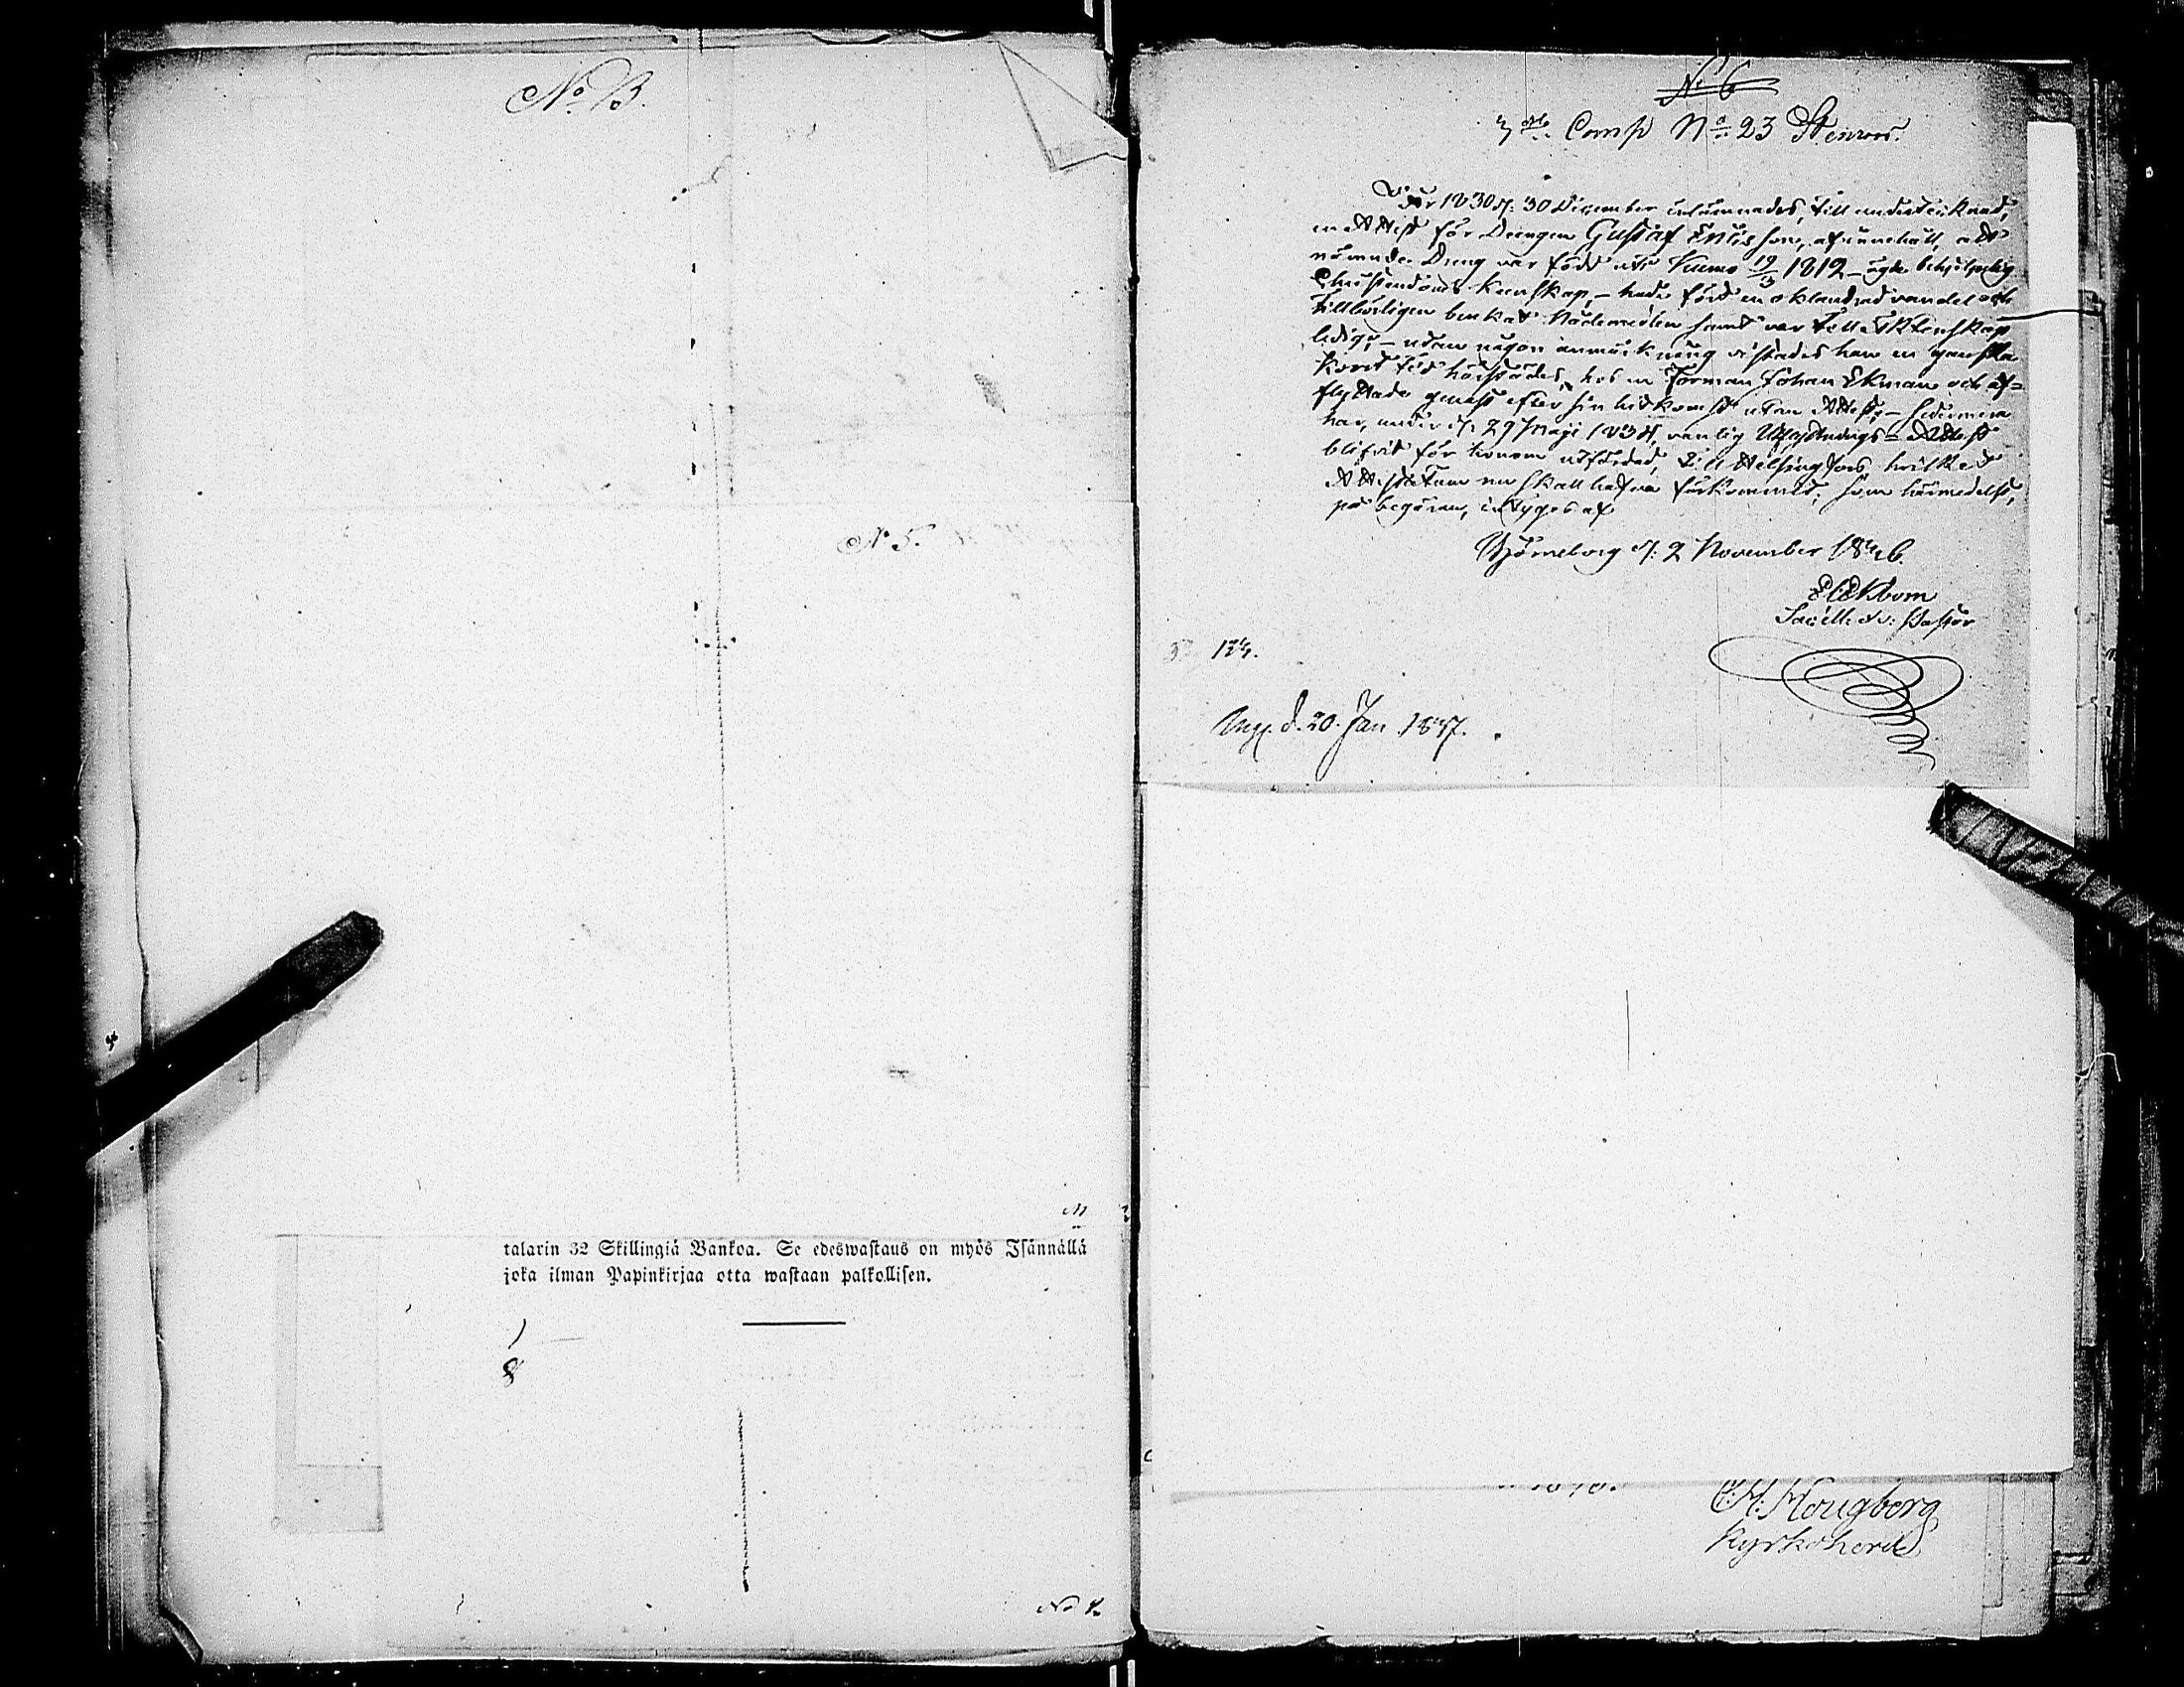 No. B.
No 5.
talarin 32 Skillingiä Bankoa. Se edeswastaus on myös Isännällä
joka ilman Papinkirjaa otta wastaan palkollisen.
1
8
No
No 6
3dje Comp No 23 Stenroos.
År 1830 d: 30 December inlemnades, till undertecknad,
en Attest för Drengen Gustaf Ericsson, af innehåll, att
nämnde Dreng var född uti Kumo 19/3 1812 – ägde behjelpelig
Christendoms kunskap, – hade fört en oklandrad vandel och
tillbörligen brukat Nådemedlen samt var till Äktenskap
ledig; – utan någon anmärkning vistades han en ganska
kort tid härstädes, hos en Forman Johan Ekman och af=
flyttade genast efter sin hitkomst utan Attest, – sedermera
har, under d: 29 Maji 1834, vanlig Utflyttnings=Attest
blifvit för honom utfärdad, till Helsingfors, hvilket
Attestatum nu skall hafva förkommit; som härmedelst,
på begäran, intygas af
Björneborg d: 2 November 1846.
Ekbom
Sacell. v: Pastor
124.
Upp. d. 20. Jan 1847.
C. H. Hougberg
Kyrkoherde